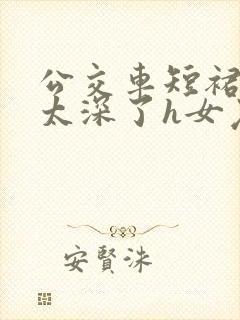 公交车短裙
太深了h女
安賢洙